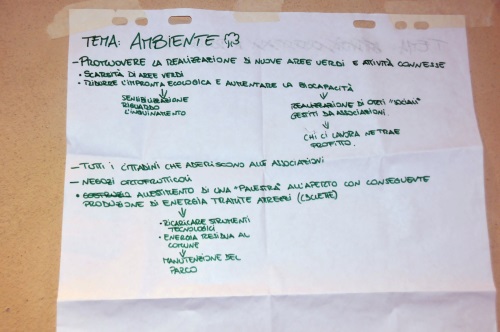 TEMA: AMBIENTE
- PROMUOVERE LA REALIZZAZIONE DI NUOVE AREE VERDI E ATTIVITÀ CONNESSE
• SCARSITÀ DI AREE VERDI
• RIDURRE L'IMPRONTA ECOLOGICA E AUMENTARE LA BIOCAPACITÀ
SENSIBILIZZAZIONE
RIGUARDO
L'INQUINAMENTO
REALIZZAZIONE DI ORTI "SOCIALI"
GESTITI DA ASSOCIAZIONI
CHI CI LAVORA NE TRAE
PROFITTO.
- TUTTI I CITTADINI CHE ADERISCONO ALLE ASSOCIAZIONI
- NEGOZI ORTOFRUTTICOLI
• ALLESTIMENTO DI UNA "PALESTRA" ALL'APERTO CON CONSEGUENTE
PRODUZIONE DI ENERGIA TRAMITE ATTREZZI (CYCLETTE)
• RICARICARE STRUMENTI
TECNOLOGICI
• ENERGIA RESIDUA AL
COMUNE
MANUTENZIONE DEL
PARCO